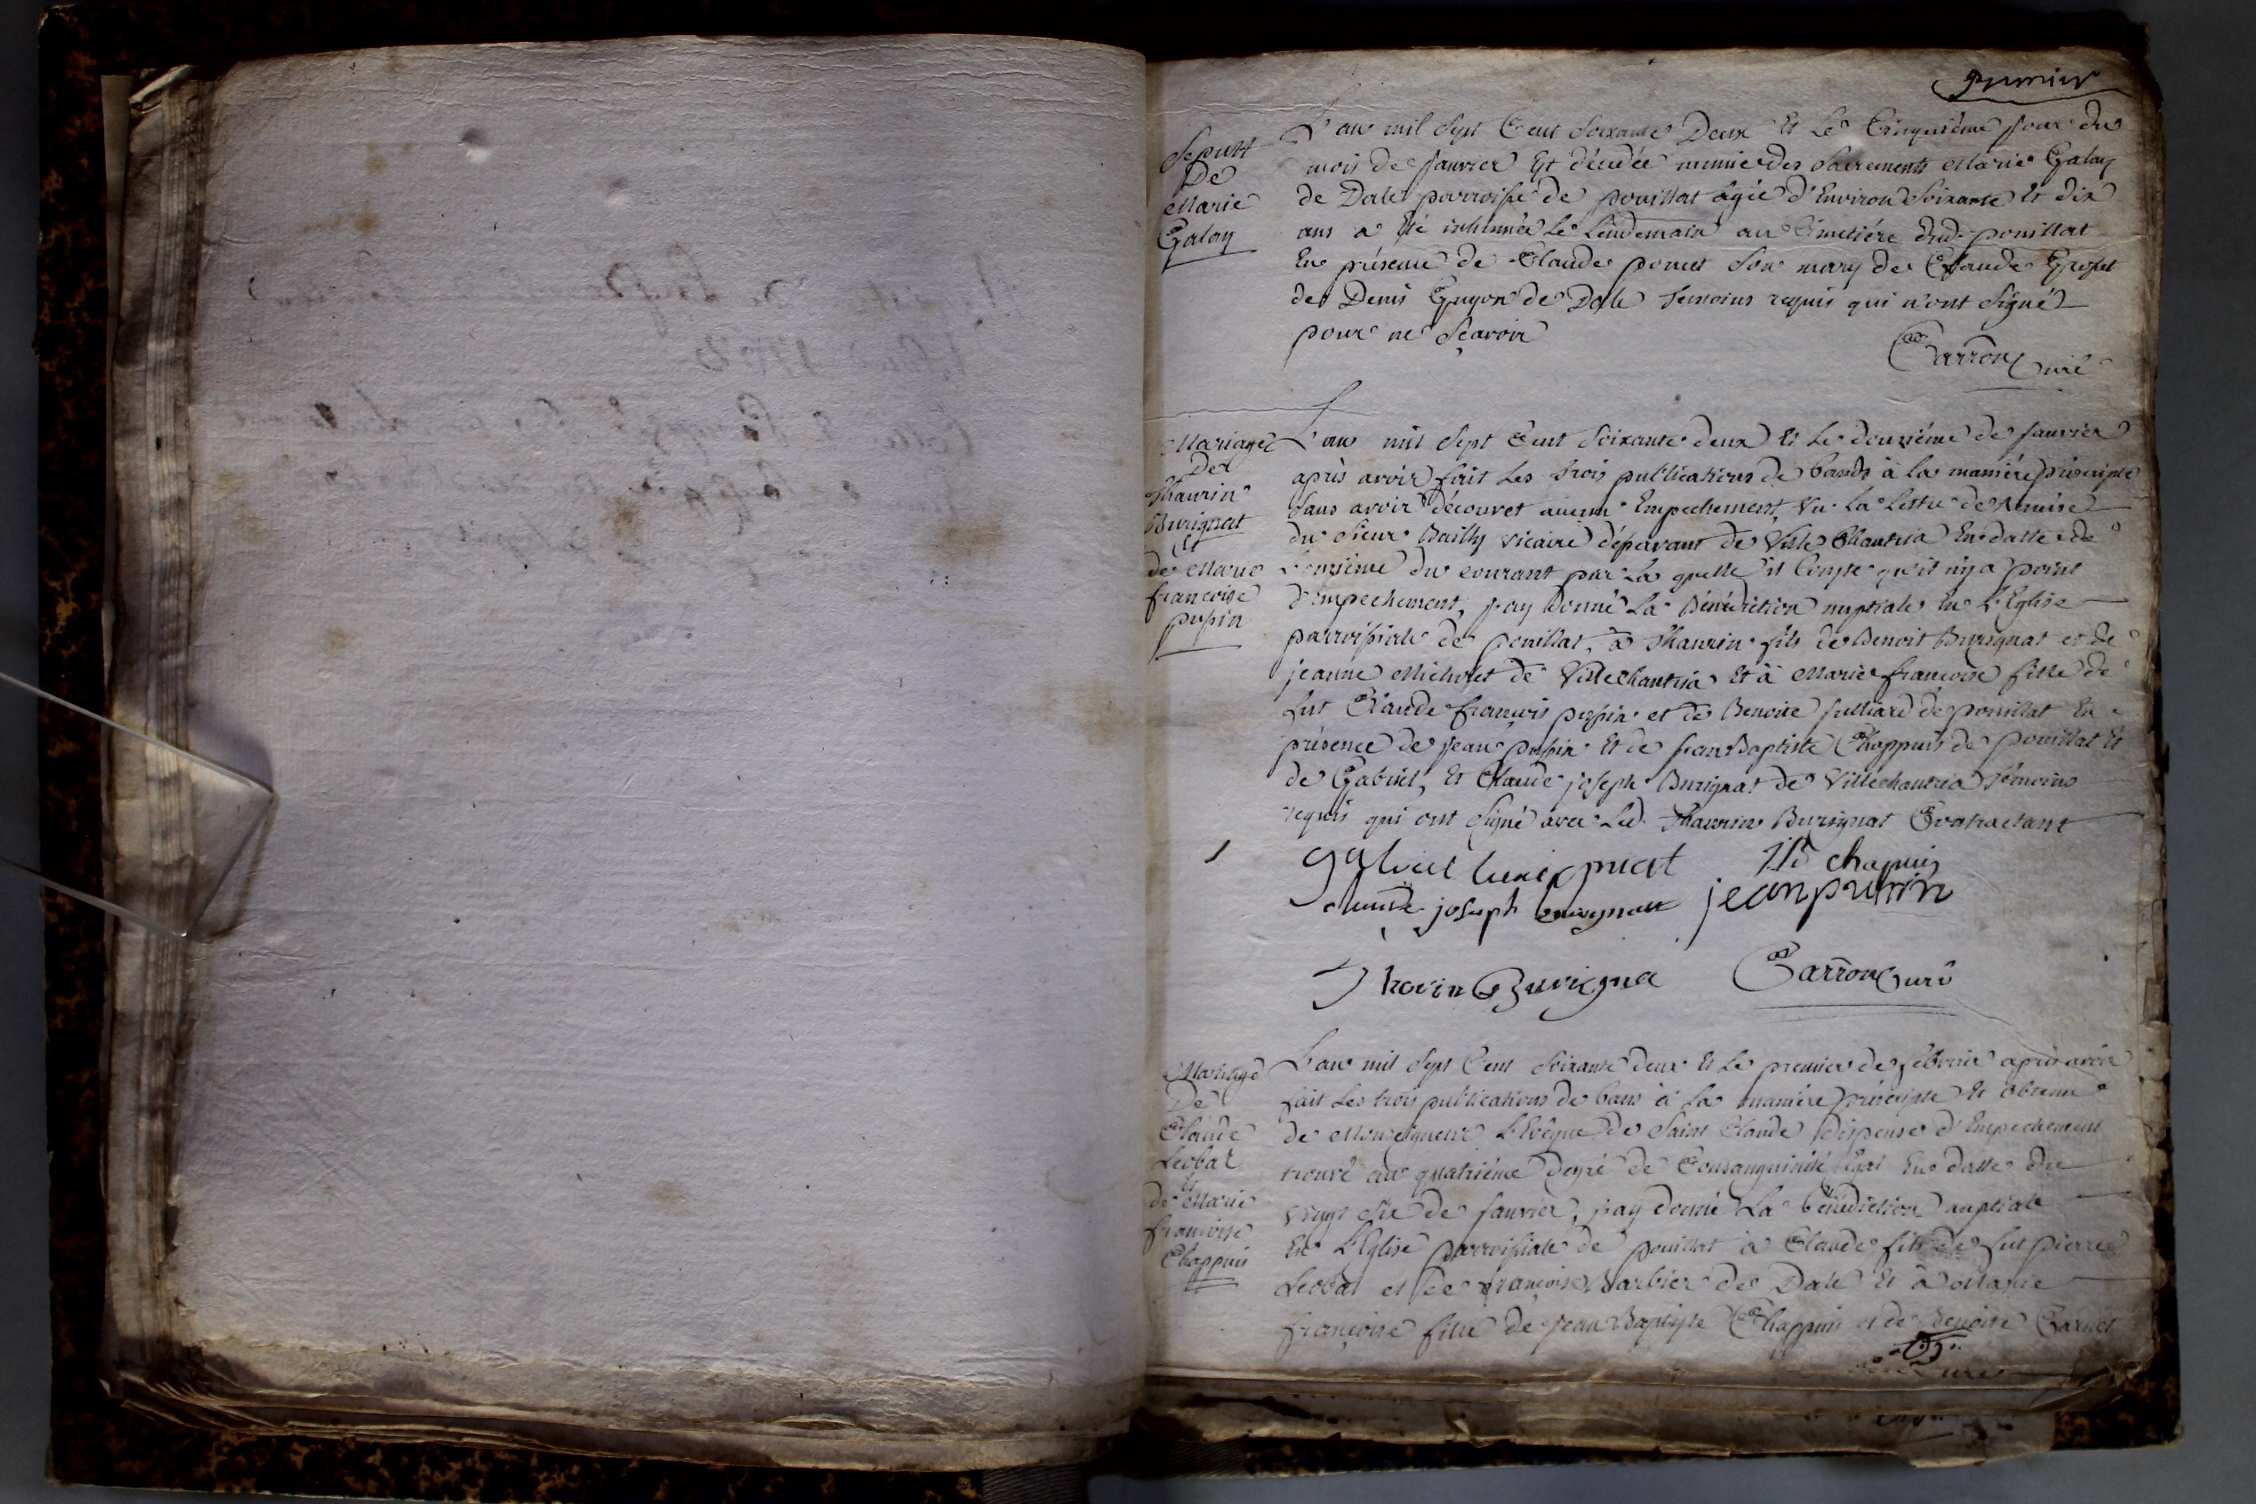 premier
Sepult
De
Marie
Galay
L'an mil Sept Cent Soixante Deux Et Le Cinquiéme jour du
mois de Janvier Est décédée munie des Sacrements Marie Galay
de Dale parroisse de pouillat agée d'Environ Soixante Et dix
ans a été inhumée Le Lendemain au Cimetiére dud. pouillat
En présence de Claude poncet Son mary de Claude
de Denis Guyon de Dale temoins requis qui n'ont Signé
pour ne Sçavoir
Carron Curé
Mariage
De
Thaurin
Burignat
Et
de Marie
françoise
pupin
L'an mil Sept Cent Soixante deux Et Le douziéme de Janvier
après avoir fait Les trois publications de bands à la maniére préscripte
Sans avoir découvert aucun Empechement, Vu La Lettre de Remise
du Sieur Bailly vicaire déservant de Ville Chantria En datte de
L'onziéme du courant par La quelle il Conste qu'il ny a point
d'Empechement, j'ay donné La Bénédiction nuptiale En L'Eglise
parroissiale de pouillat, à Thaurin fils de Benoit Burignat et de
jeanne Micholet de Villechantria Et à Marie françoise fille de
fut Claude françois pupin et de Benoite Julliard de pouillat En
présence de Jean pupin Et de Jean Baptiste Chappuis de pouillat Et
de Gabriel, Et Claude joseph Burignat de Villechantria témoins
requis qui ont Signé avec Led. Thaurin Burignat Contractant
gabriel burignat JB chapuis
claude joseph burignat jean pupin
Thorin Burigna Carron Curé
Mariage
De
Claude
Leobal
Et
de Marie
françoise
Chappuis
L'an mil Sept Cent Soixante deux Et Le premier de février après avoir
fait Les trois publications de bans à La maniére préscripte Et obtenu
de Monseigneur L'Evêque de Saint Claude dispense d'Empechement
trouvé au quatriéme degré de Consanguinité Egal En datte du
vingt Six de Janvier, j'ay donné La bénédiction nuptiale
En L'Eglise parroissiale de pouillat à Claude fils de fut pierre
Leobal et de françoise Barbier de Dale Et à Marie
françoise fille de Jean Baptiste Chappuis et de Benoite